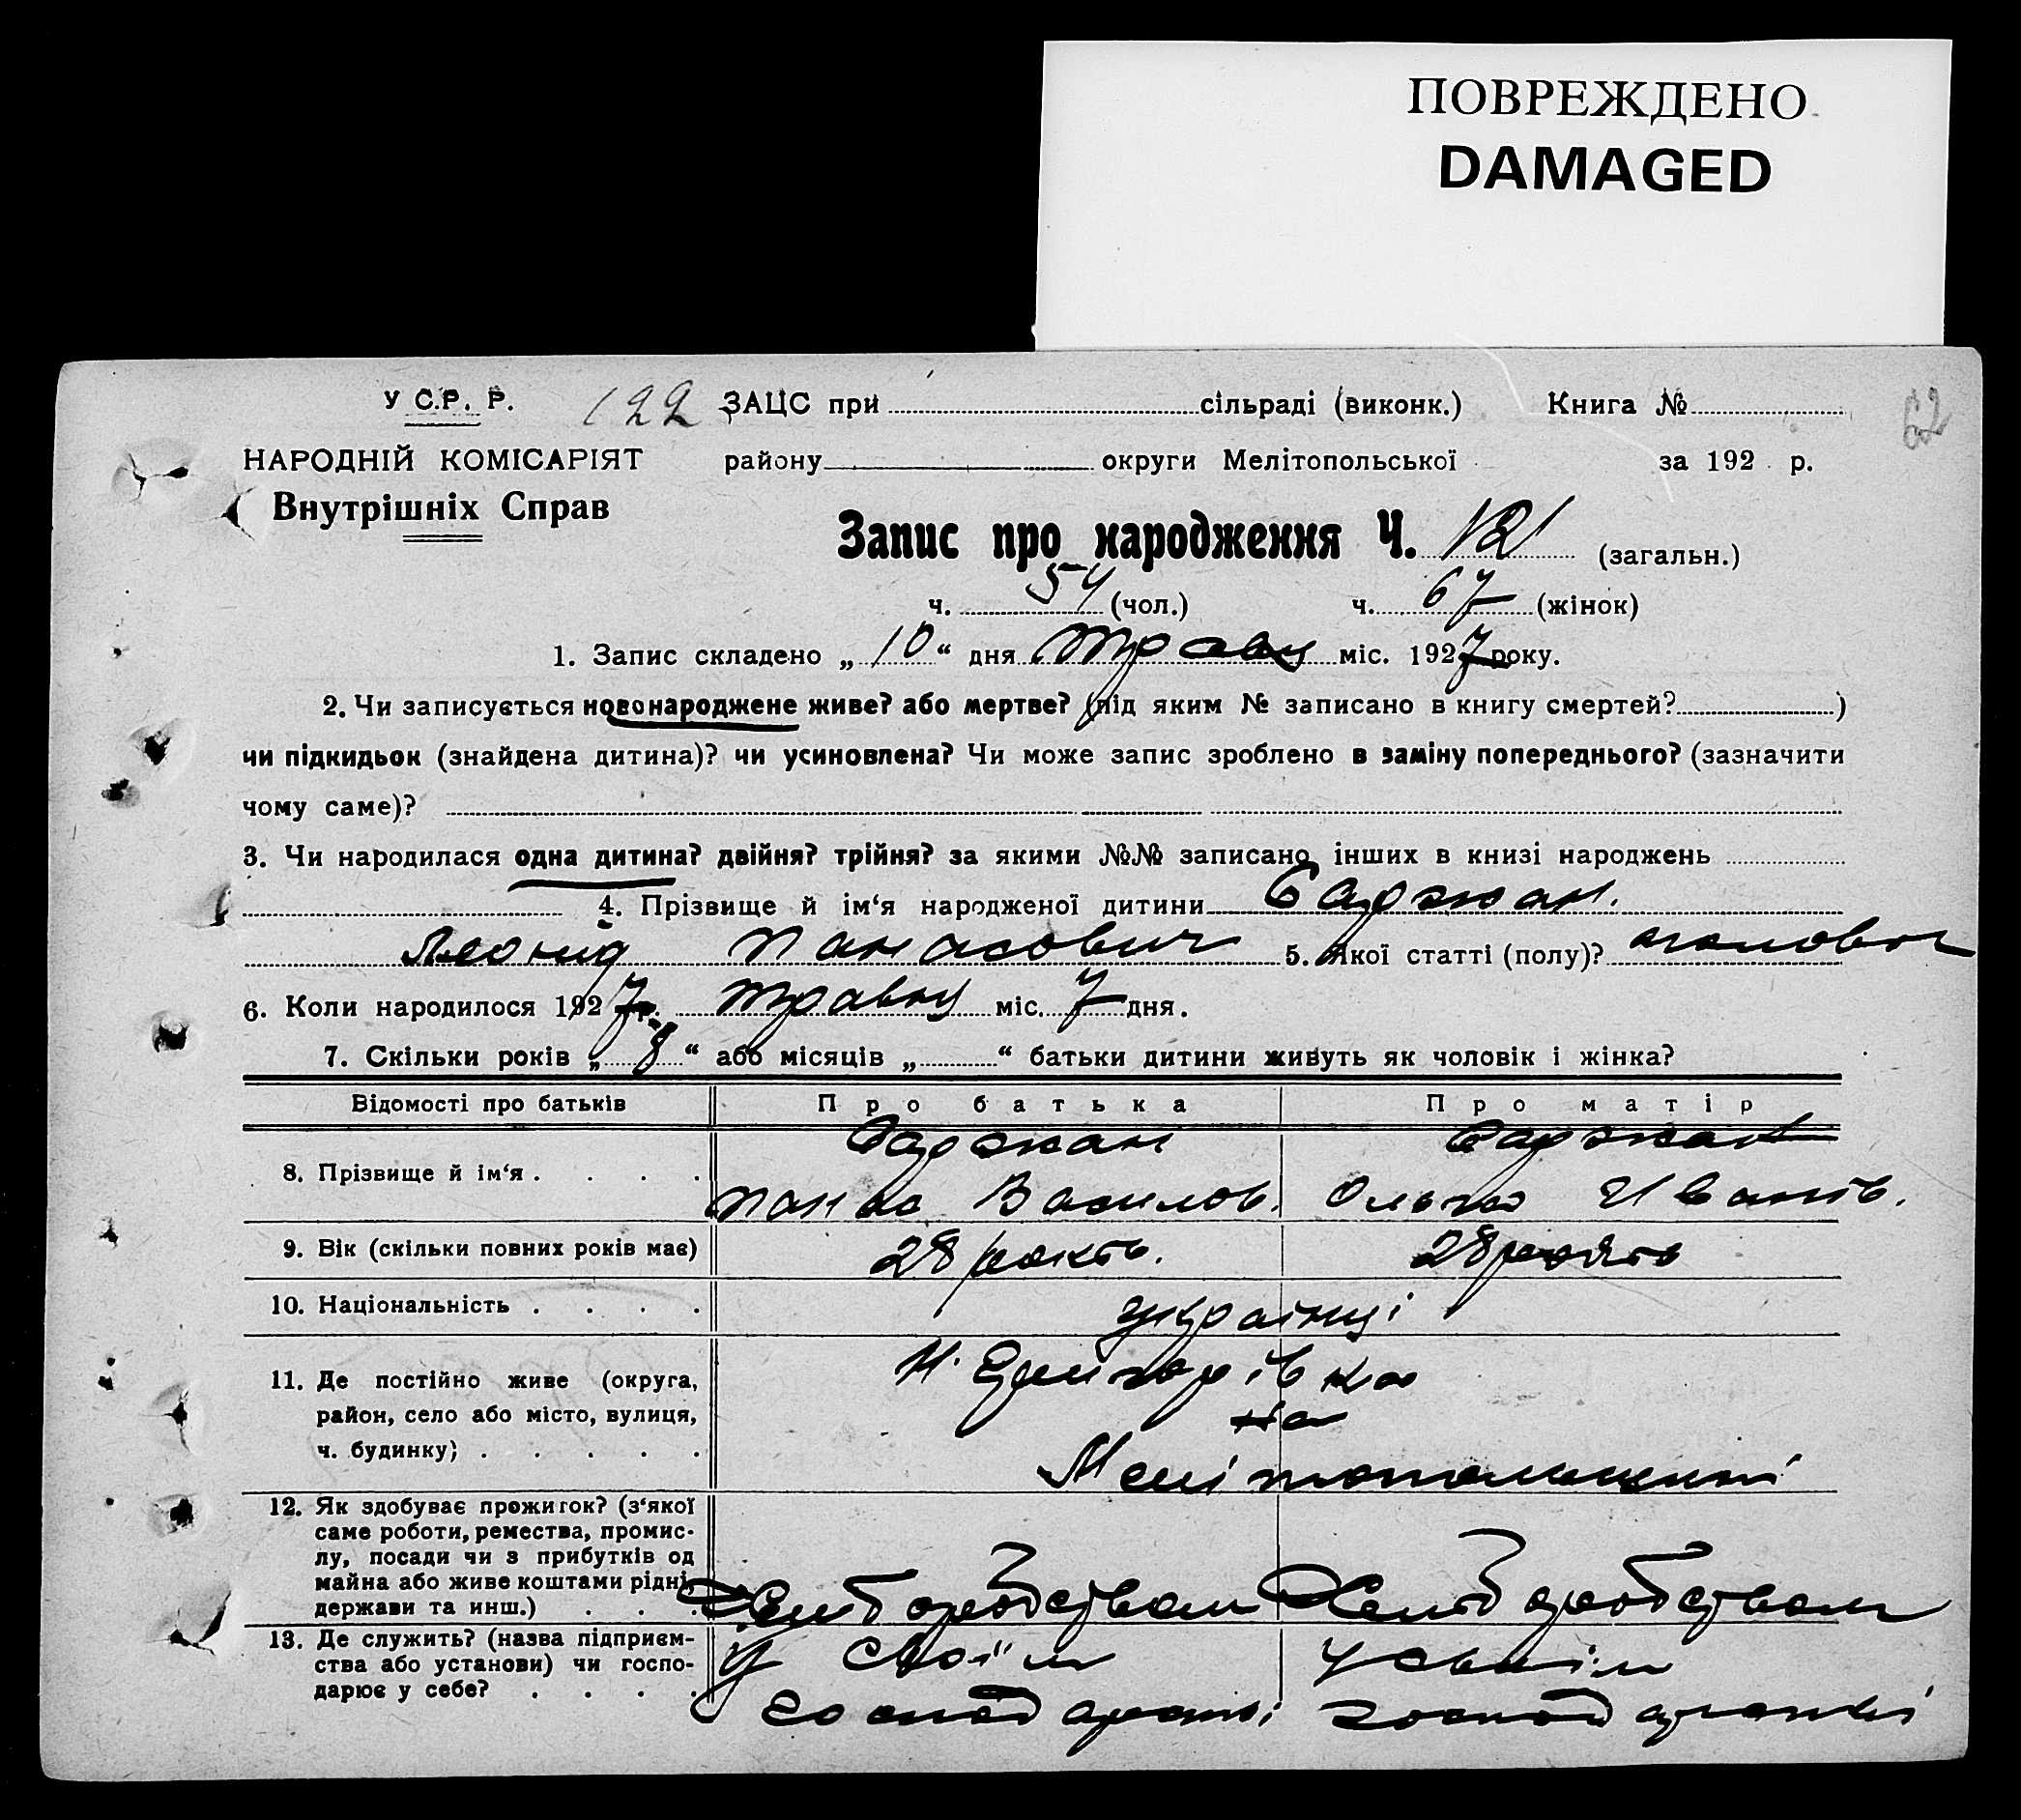 ПОВРЕЖДЕНО
DAMAGED
У С.Р. Р. 122 ЗАЦС при сільраді (виконк.) Книга № 62
НАРОДНІЙ КОМІСАРІЯТ району округи Мелітопольської за 192 р.
Внутрішніх Справ
Запис про народження Ч. 121 (загальн.)
ч. 54 (чол.) ч. 67 (жінок)
1. Запис складено „ 10 “ дня травн міс. 1927 року.
2. Чи записується новонароджене живе? або мертве? (під яким № записано в книгу смертей? )
чи підкидьок (знайдена дитина)? чи усиновлена? Чи може запис зроблено в заміну попереднього? (зазначити
чому саме)?
3. Чи народилася одна дитина? двійня? трійня? за якими №№ записано інших в книзі народжень
4. Прізвище й ім‘я народженої дитини Саржан.
Леонид Панасович 5. Якої статті (полу)?
6. Коли народилося 1927 р. травня міс. 7 дня.
7. Скільки років „ 8 “ або місяців „ “ батьки дитини живуть як чоловік і жінка?
Відомості про батьків Про батька Про матір
Саржан Саржан
8. Прізвище й ім‘я . . . .
Панас Василов. Ольга Иванів.
9. Вік (скільки повних років має) 28 років. 28 років
10. Національність . . . . українці
11. Де постійно живе (округа, Н. Григорівка
район, село або місто, вулиця, на
ч. будинку) . . . . .
Мелітопольщині
12. Як здобуває прожиток? (з‘якої
саме роботи, ремества, промис-
лу, посади чи з прибутків од
майна або живе коштами рідні,
держави та инш.) . . . Хліборобством Хліборобством
13. Де служить? (назва підприєм-
ства або установи) чи госпо- У своїм У своїм
дарює у себе? . . . . господарстві господарстві